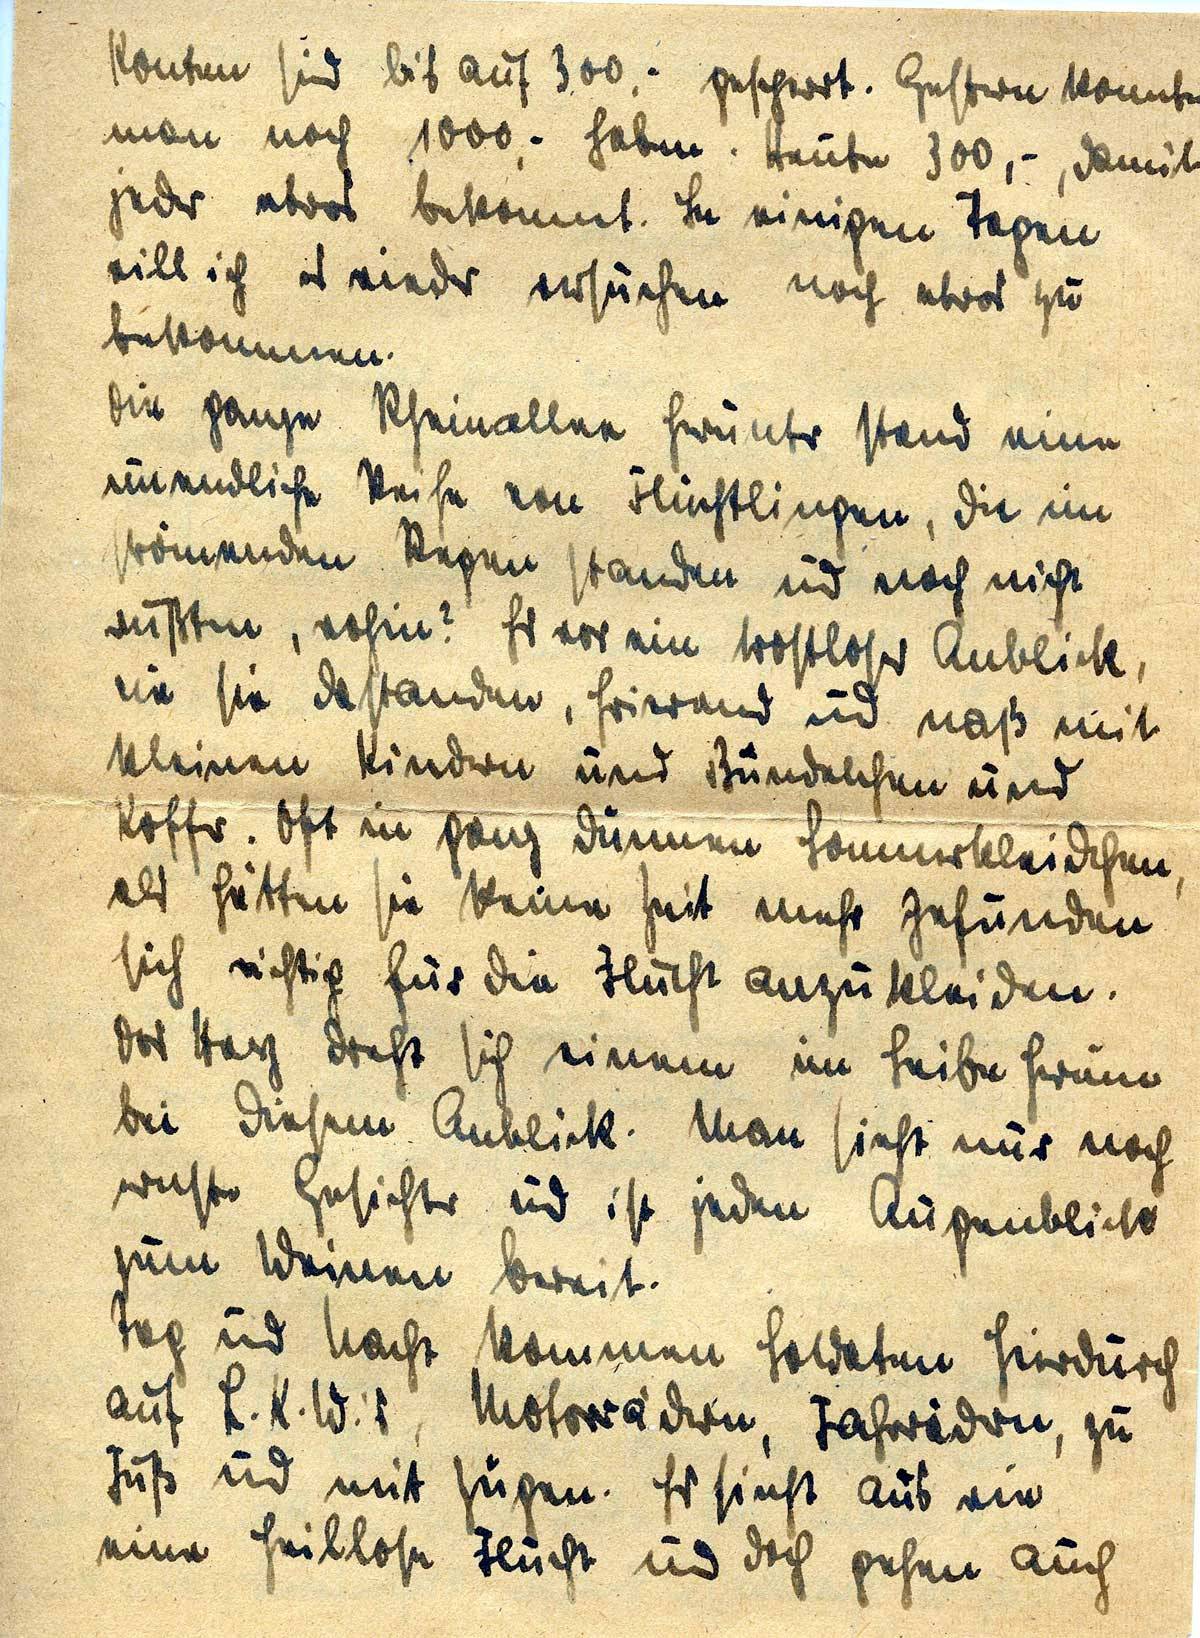 Konten sind bis auf 300,- gesperrt. Gestern konnte
man noch 1000,- haben. Heute 300,-, damit
jeder etwas bekommt. In einigen Tagen
will ich es wieder versuchen noch etwas zu
bekommen.
Die ganze Rheinallee herunter stand eine
unendliche Reihe von Flüchtlingen, die im
strömenden Regen standen ud noch nicht
wußten, wohin? Es war ein trostloser Anblick,
wie sie dastanden, frierend ud naß mit
kleinen Kindern und Bündelchen und
Koffer. Oft in ganz dünnen Sommerkleidchen,
als hätten sie keine Zeit mehr gefunden
sich richtig für die Flucht anzukleiden.
Das Herz dreht sich einem im Leibe herum
bei diesem Anblick. Man sieht nur noch
ernste Gesichter ud ist jeden Augenblick
zum Weinen bereit.
Tag ud Nacht kommen Soldaten hierdurch
auf L.K.W.'s, Motorrädern, Fahrrädern, zu
Fuß ud mit Zügen. Es sieht aus wie
eine heillose Flucht ud doch gehen auch